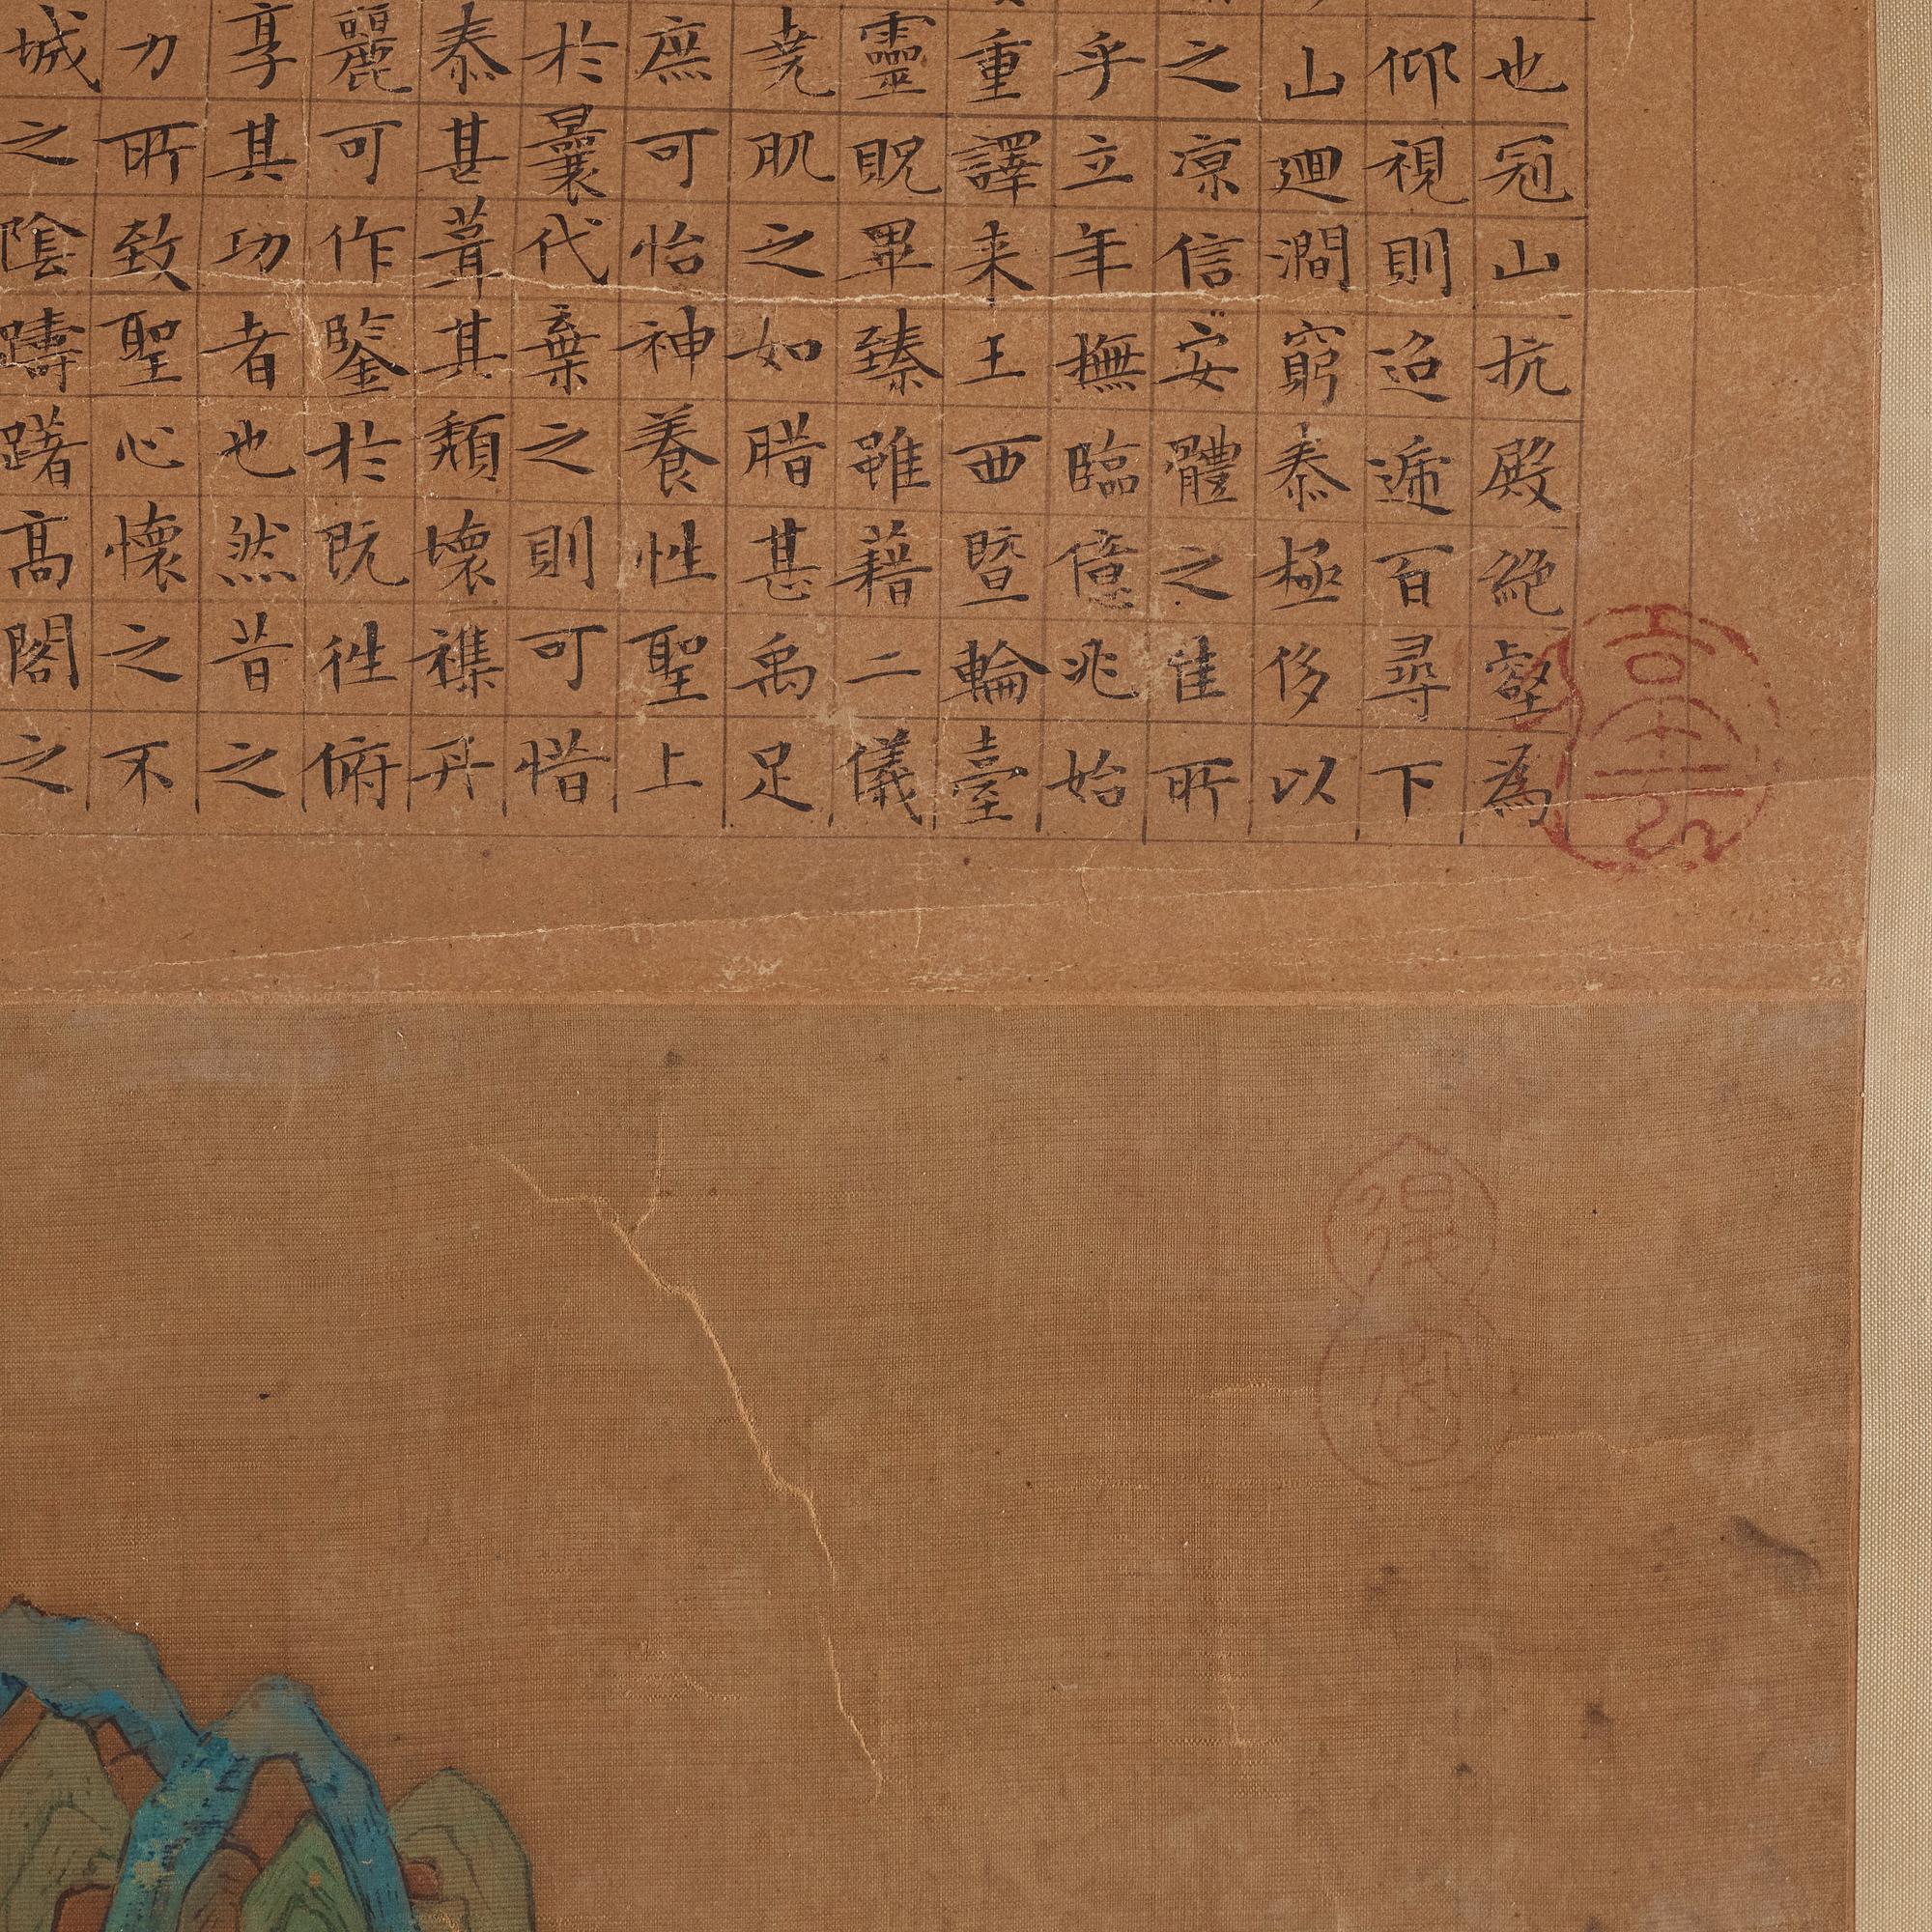 也冠山抗殿絶壑為
仰視則迢遞百尋下
山迴澗窮泰極侈以
之凉信安體之佳所
乎立年撫臨億兆始
重譯来王西暨輪臺
靈貺畢臻雖藉二儀
堯肌之如腊甚禹足
庶可怡神養性聖上
於曩代棄之則可惜
泰甚葺其頹壞襍丹
麗可作鑒於既往俯
享其功者也然昔之
力所致聖心懷之不
城之陰躊躇高閣之